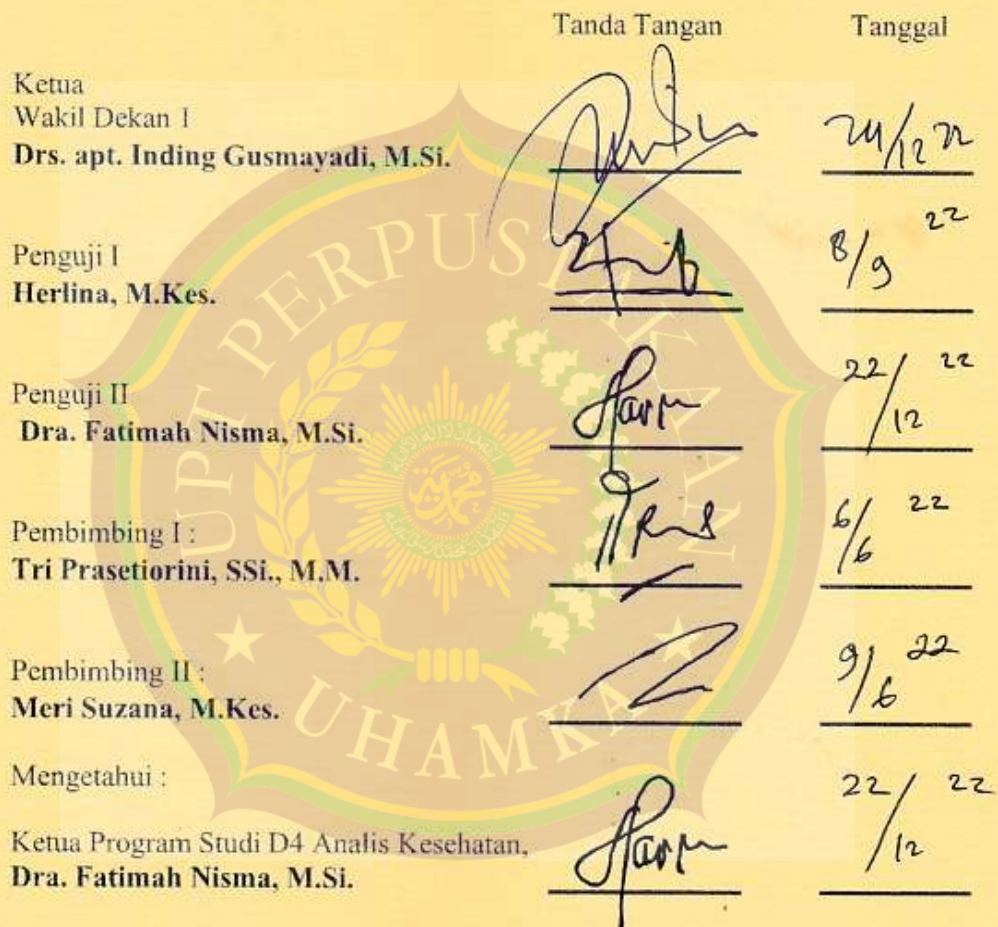 Tanda Tangan Tanggal
Ketua
Wakil Dekan I
Drs. apt. Inding Gusmayadi, M.Si.
24/12 22
Penguji I
Herlina, M.Kes.
8/9 22
Penguji II
Dra. Fatimah Nisma, M.Si.
22/12 22
Pembimbing I :
Tri Prasetiorini, SSi., M.M.
6/6 22
Pembimbing II :
Meri Suzana, M.Kes.
9/6 22
Mengetahui :
Ketua Program Studi D4 Analis Kesehatan,
Dra. Fatimah Nisma, M.Si.
22/12 22
UPT PERPUSTAKAAN
UHAMKA